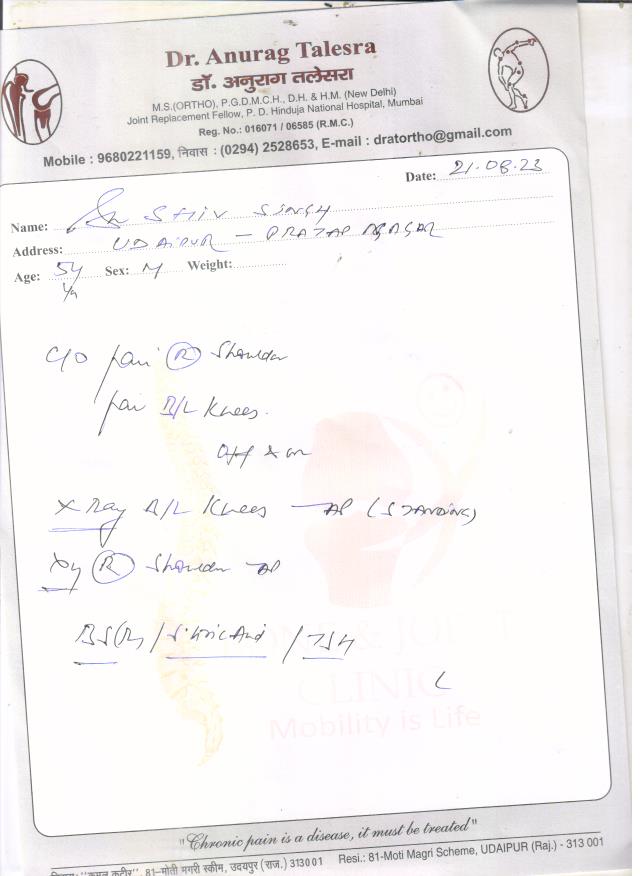 Dr. Anurag Talesra
डॉ. अनुराग तलेसरा
M.S.(ORTHO), P.G.D.M.C.H., D.H. & H.M. (New Delhi)
Joint Replacement Fellow, P. D. Hinduja National Hospital, Mumbai
Reg. No.: 016071 / 06585 (R.M.C.)
Mobile : 9680221159, निवास : (0294) 2528653, E-mail : dratortho@gmail.com
Date: 21.08.23
Name: SHIV SINGH
Address: UDAIPUR - PRATAP NAGAR
Age: 54 Sex: M Weight:
C/O pain (R) Shoulder
pain B/L Knees.
off & on
X Ray B/L Knees - AP (STANDING)
Xy (R) Shoulder AP
BS(R) / S. Uric Acid / TSH
BONE & JOINT
CLINIC
Mobility is Life
"Chronic pain is a disease, it must be treated"
81-मोती मगरी स्कीम, उदयपुर (राज.) 313001 Resi.: 81-Moti Magri Scheme, UDAIPUR (Raj.) - 313 001